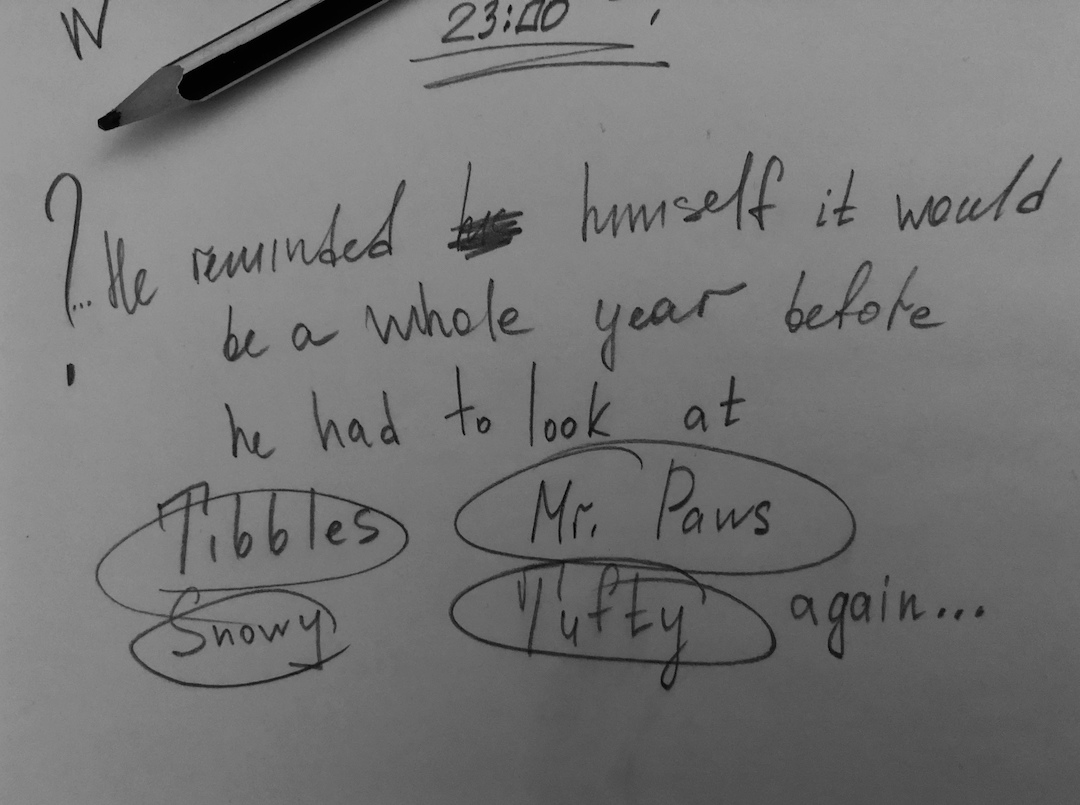 W
23:00
?
...He reminded himself it would
be a whole year before
he had to look at
Tibbles Mr. Paws
Snowy Tufty again...